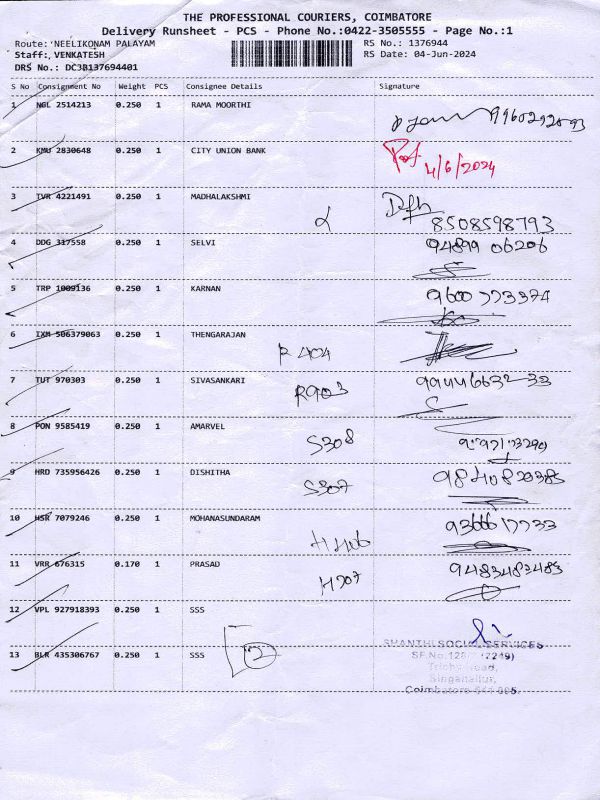 THE PROFESSIONAL COURIERS, COIMBATORE
Delivery Runsheet - PCS - Phone No.:0422-3505555 - Page No.:1
Route: NEELIKONAM PALAYAM
RS No.: 1376944
Staff: VENKATESH
RS Date: 04-Jun-2024
DRS No.: DC3B137694401
S No Consignment No Weight PCS Consignee Details Signature
1 NGL 2514213 0.250 1 RAMA MOORTHI
2 KMU 2830648 0.250 1 CITY UNION BANK
4/6/2024
3 TVR 4221491 0.250 1 MADHALAKSHMI
8508598793
4 DDG 317558 0.250 1 SELVI 94899 06206
5 TRP 1009136 0.250 1 KARNAN
6 IXM 506379063 0.250 1 THENGARAJAN
R 404
7 TUT 970303 0.250 1 SIVASANKARI
R903
8 PON 9585419 0.250 1 AMARVEL
S308
9 HRD 735956426 0.250 1 DISHITHA
S307
10 HSR 7079246 0.250 1 MOHANASUNDARAM
H406
11 VRR 676315 0.170 1 PRASAD 9483483483
H707
12 VPL 927918393 0.250 1 SSS
SHANTHI SOCIAL SERVICES
13 BLR 435306767 0.250 1 SSS
2
Singanallur,
Coimbatore-641 005.